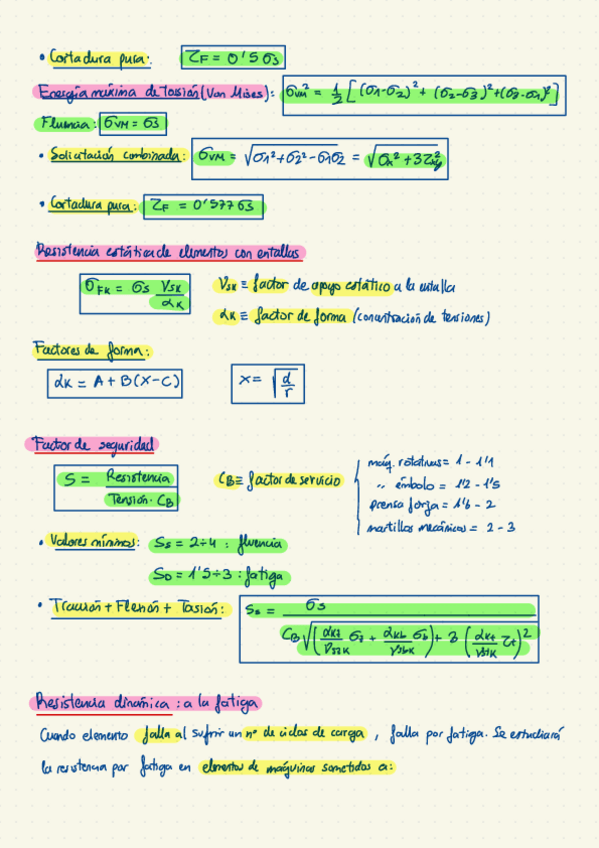 • Cortadura pura: τF = 0'5 σs
Energía máxima de torsión (Von Mises): σVM² = 1/2 [(σ1-σ2)² + (σ2-σ3)² + (σ3-σ1)²]
Fluencia: σVM = σs
• Solicitación combinada: σVM = √(σ1² + σ2² - σ1σ2) = √(σx² + 3τxy²)
• Cortadura pura: τF = 0'577 σs
Resistencia estática de elementos con entallas
σFK = σs νsK/αK
νsK ≡ factor de apoyo estático a la entalla
αK ≡ factor de forma (concentración de tensiones)
Factores de forma:
αK = A + B(X-C) x = √(d/r)
Factor de seguridad
S = Resistencia / Tensión · CB
CB ≡ factor de servicio
máq. rotativas = 1 - 1'1
" émbolo = 1'2 - 1'5
prensa forja = 1'6 - 2
martillos mecánicos = 2 - 3
• Valores mínimos: Ss = 2÷4 : fluencia
SD = 1'5÷3 : fatiga
• Tracción + Flexión + Torsión: Ss = σs
Resistencia dinámica: a la fatiga
Cuando elemento falla al sufrir un nº de ciclos de carga, falla por fatiga. Se estudiará
la resistencia por fatiga en elementos de máquinas sometidos a: